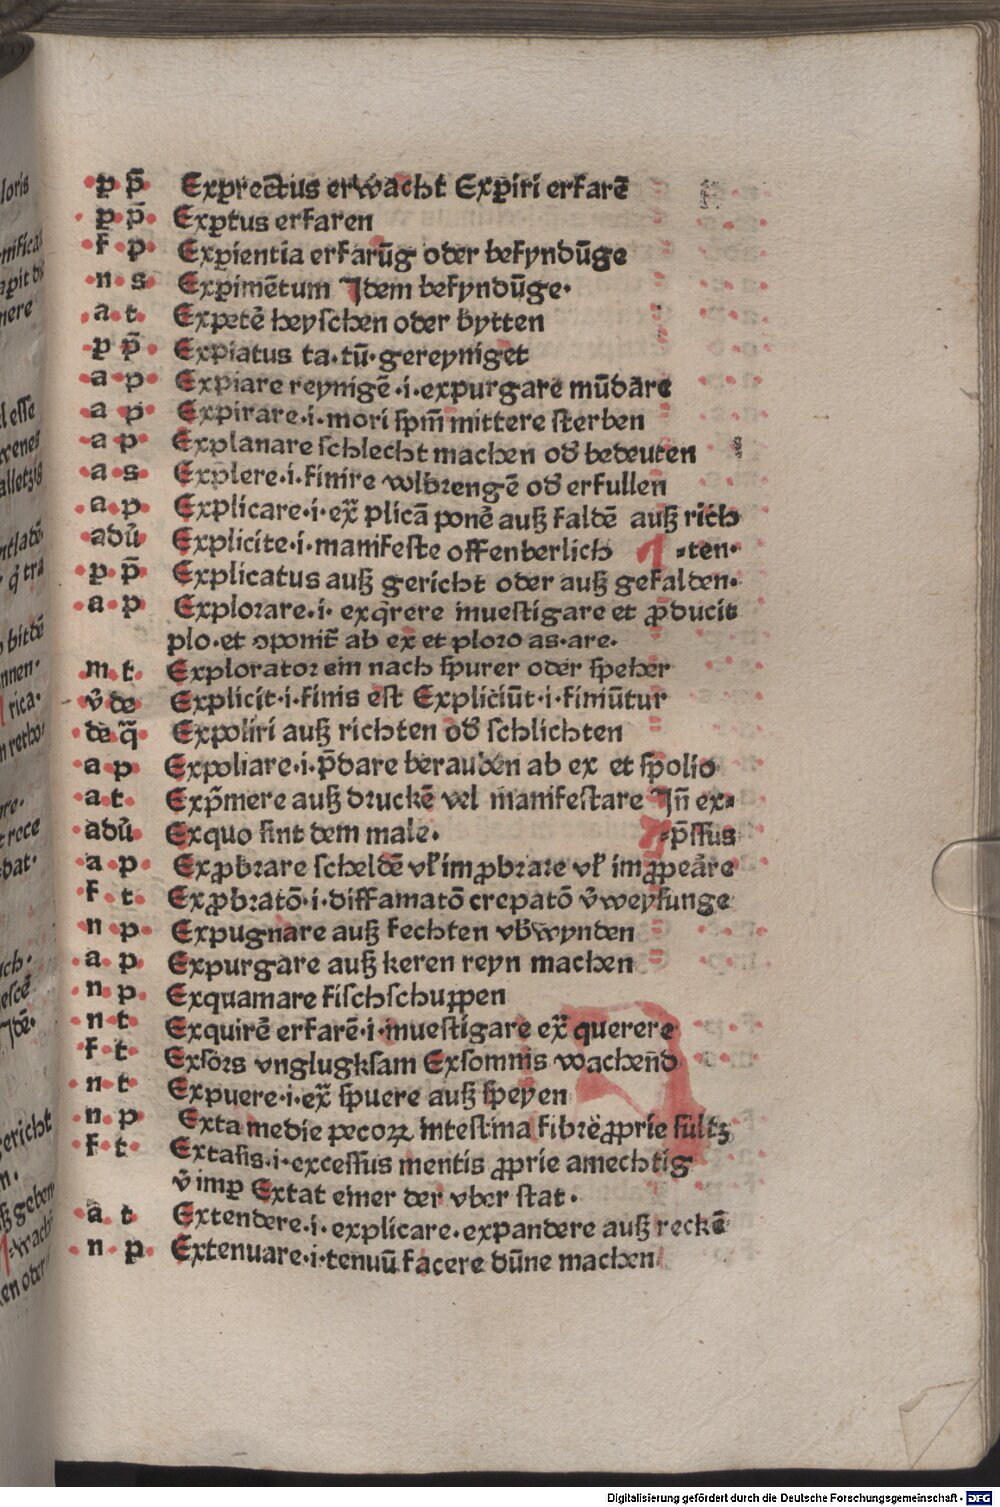 ꝑ p̄ Exꝑrectus erwacht Exꝑiri erfarē
ꝑ p̄ Exꝑtus erfaren
f p Exꝑientia erfarūg oder befyndūge
n s Exꝑimētum Jdem befyndūge·
a t Expetē heyschen oder bytten
ꝑ p̄ Expiatus ta·tū·gereyniget
a p Expiare reynigē·i·expurgare mūdare
a p Expirare·i·mori spm̄ mittere sterben
a p Explanare schlecht machen od̓ bedeuten
a s Explere·i·finire volbrengē od̓ erfullen
a p Explicare·i·ex̄ plicā ponē auß faldē auß rich
adū Explicite·i·manifeste offenberlich ⸗ten·
ꝑ p̄ Explicatus auß gericht oder auß gefalden·
a p Explorare·i·exq̄rere inuestigare et ꝓducit̄
plo·et ꝯponit̄ ab ex et ploro as·are·
m t Explorator ein nach spurer oder speher
v̓ de Explicit·i·finis est Expliciūt·i·finiūtur
de q̄ Expoliri auß richten od̓ schlichten
a p Expoliare·i·p̄dare berauben ab ex et spolio
a t Exp̄mere auß druckē vel manifestare Jn̄ ex⸗
adū Exquo sint dem male· ⸗p̄ssus
a p Exꝓbrare scheldē vl̓ imꝓbrare vl̓ imꝓpeare
f t Exꝓbratō·i·diffamatō crepatō v̓weysunge
n p Expugnare auß fechten vb̓wynden
a p Expurgare auß keren reyn machen
n p Exquamare fischschuppen
n t Exquirē erfarē·i·inuestigare ex̄ querere
f t Exsors vnglugksam Exsomnis wachen̄d
n t Expuere·i·ex̄ spuere auß speyen
n p Exta medie pecoꝝ intestina fibrē ꝓprie sultz
f t Extasis·i·excessus mentis ꝓprie amechtig
v̓ imꝑ Extat einer der vber stat·
a t Extendere·i·explicare·expandere auß reckē
n p Extenuare·i·tenuū facere dūne machen
Digitalisierung gefördert durch die Deutsche Forschungsgemeinschaft - DFG